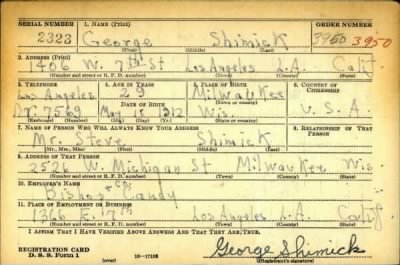 SERIAL NUMBER 1. NAME (Print) ORDER NUMBER
2323 George Shimick 3950 3950
(First) (Middle) (Last)
2. ADDRESS (Print)
1406 W. 7th St Los Angeles L.A. Calif
(Number and street or R. F. D. number) (Town) (County) (State)
3. TELEPHONE 4. AGE IN YEARS 5. PLACE OF BIRTH 6. COUNTRY OF CITIZENSHIP
Los Angeles 29 Milwaukee
DATE OF BIRTH (Town or county)
7569 May 1912 Wis. U.S.A.
(Exchange) (Number) (Mo.) (Day) (Yr.) (State or country)
7. NAME OF PERSON WHO WILL ALWAYS KNOW YOUR ADDRESS 8. RELATIONSHIP OF THAT PERSON
Mr. Steve Shimick
(Mr., Mrs., Miss) (First) (Middle) (Last)
9. ADDRESS OF THAT PERSON
2526 W. Michigan St Milwaukee Wis
(Number and street or R. F. D. number) (Town) (County) (State)
10. EMPLOYER'S NAME
Bishop & Co. Candy
11. PLACE OF EMPLOYMENT OR BUSINESS
1366 E. 7th Los Angeles L.A. Calif
(Number and street or R. F. D. number) (Town) (County) (State)
I AFFIRM THAT I HAVE VERIFIED ABOVE ANSWERS AND THAT THEY ARE TRUE.
REGISTRATION CARD George Shimick
D. S. S. Form 1 (over) 16—17105 (Registrant's signature)